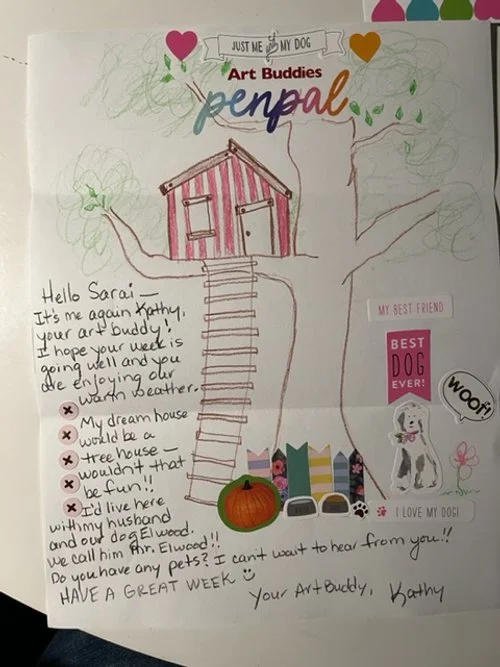 JUST ME and MY DOG
Art Buddies
penpal
Hello Sarai —
It's me again Kathy,
your art buddy!
I hope your week is
going well and you
are enjoying our
warm weather.
My dream house
would be a
tree house —
wouldn't that
be fun!!
I'd live here
with my husband
and our dog Elwood.
We call him Mr. Elwood!!
Do you have any pets? I can't wait to hear from you!!
HAVE A GREAT WEEK
Your Art Buddy, Kathy
MY BEST FRIEND
BEST
DOG
EVER!
WOOF!
I LOVE MY DOG!